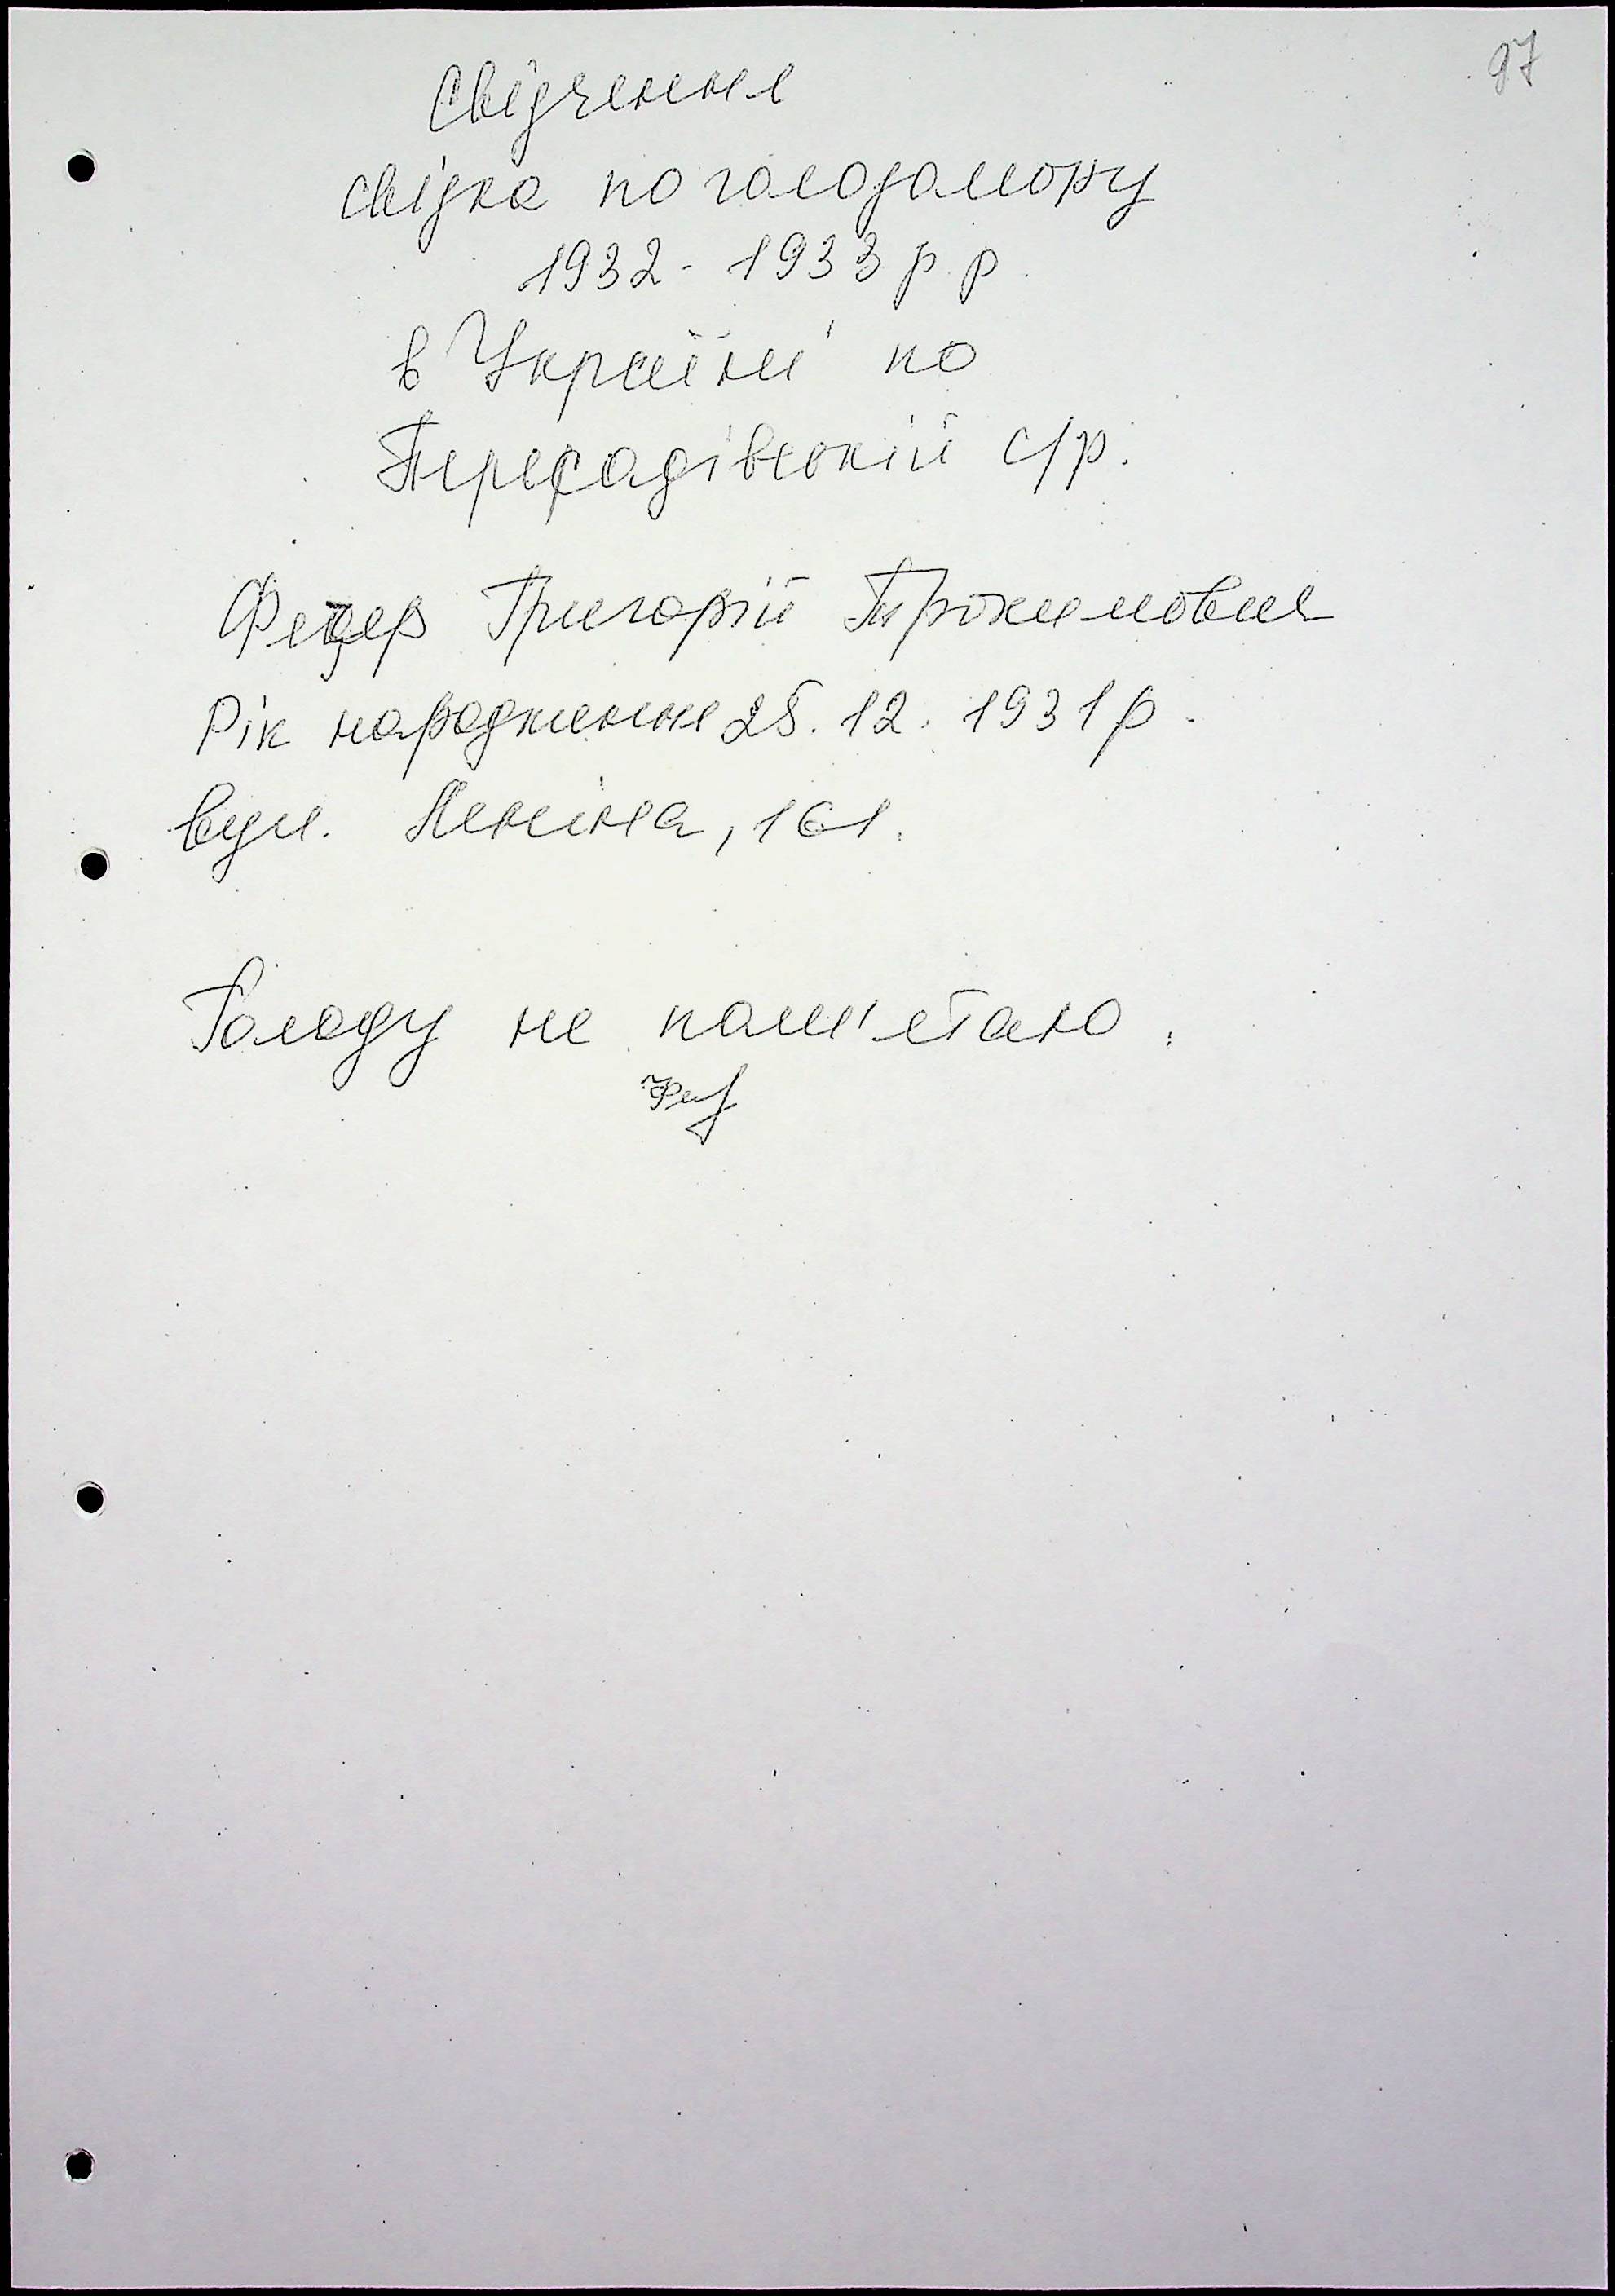 97
Свідчення
свідка по голодомору
1932 - 1933 р. р.
в Україні по
Пересадівській с/р.
Григорій Трохимович
Рік народження 25. 12. 1931р.
вул. Леніна, 161.
Голоду не пам'ятаю.